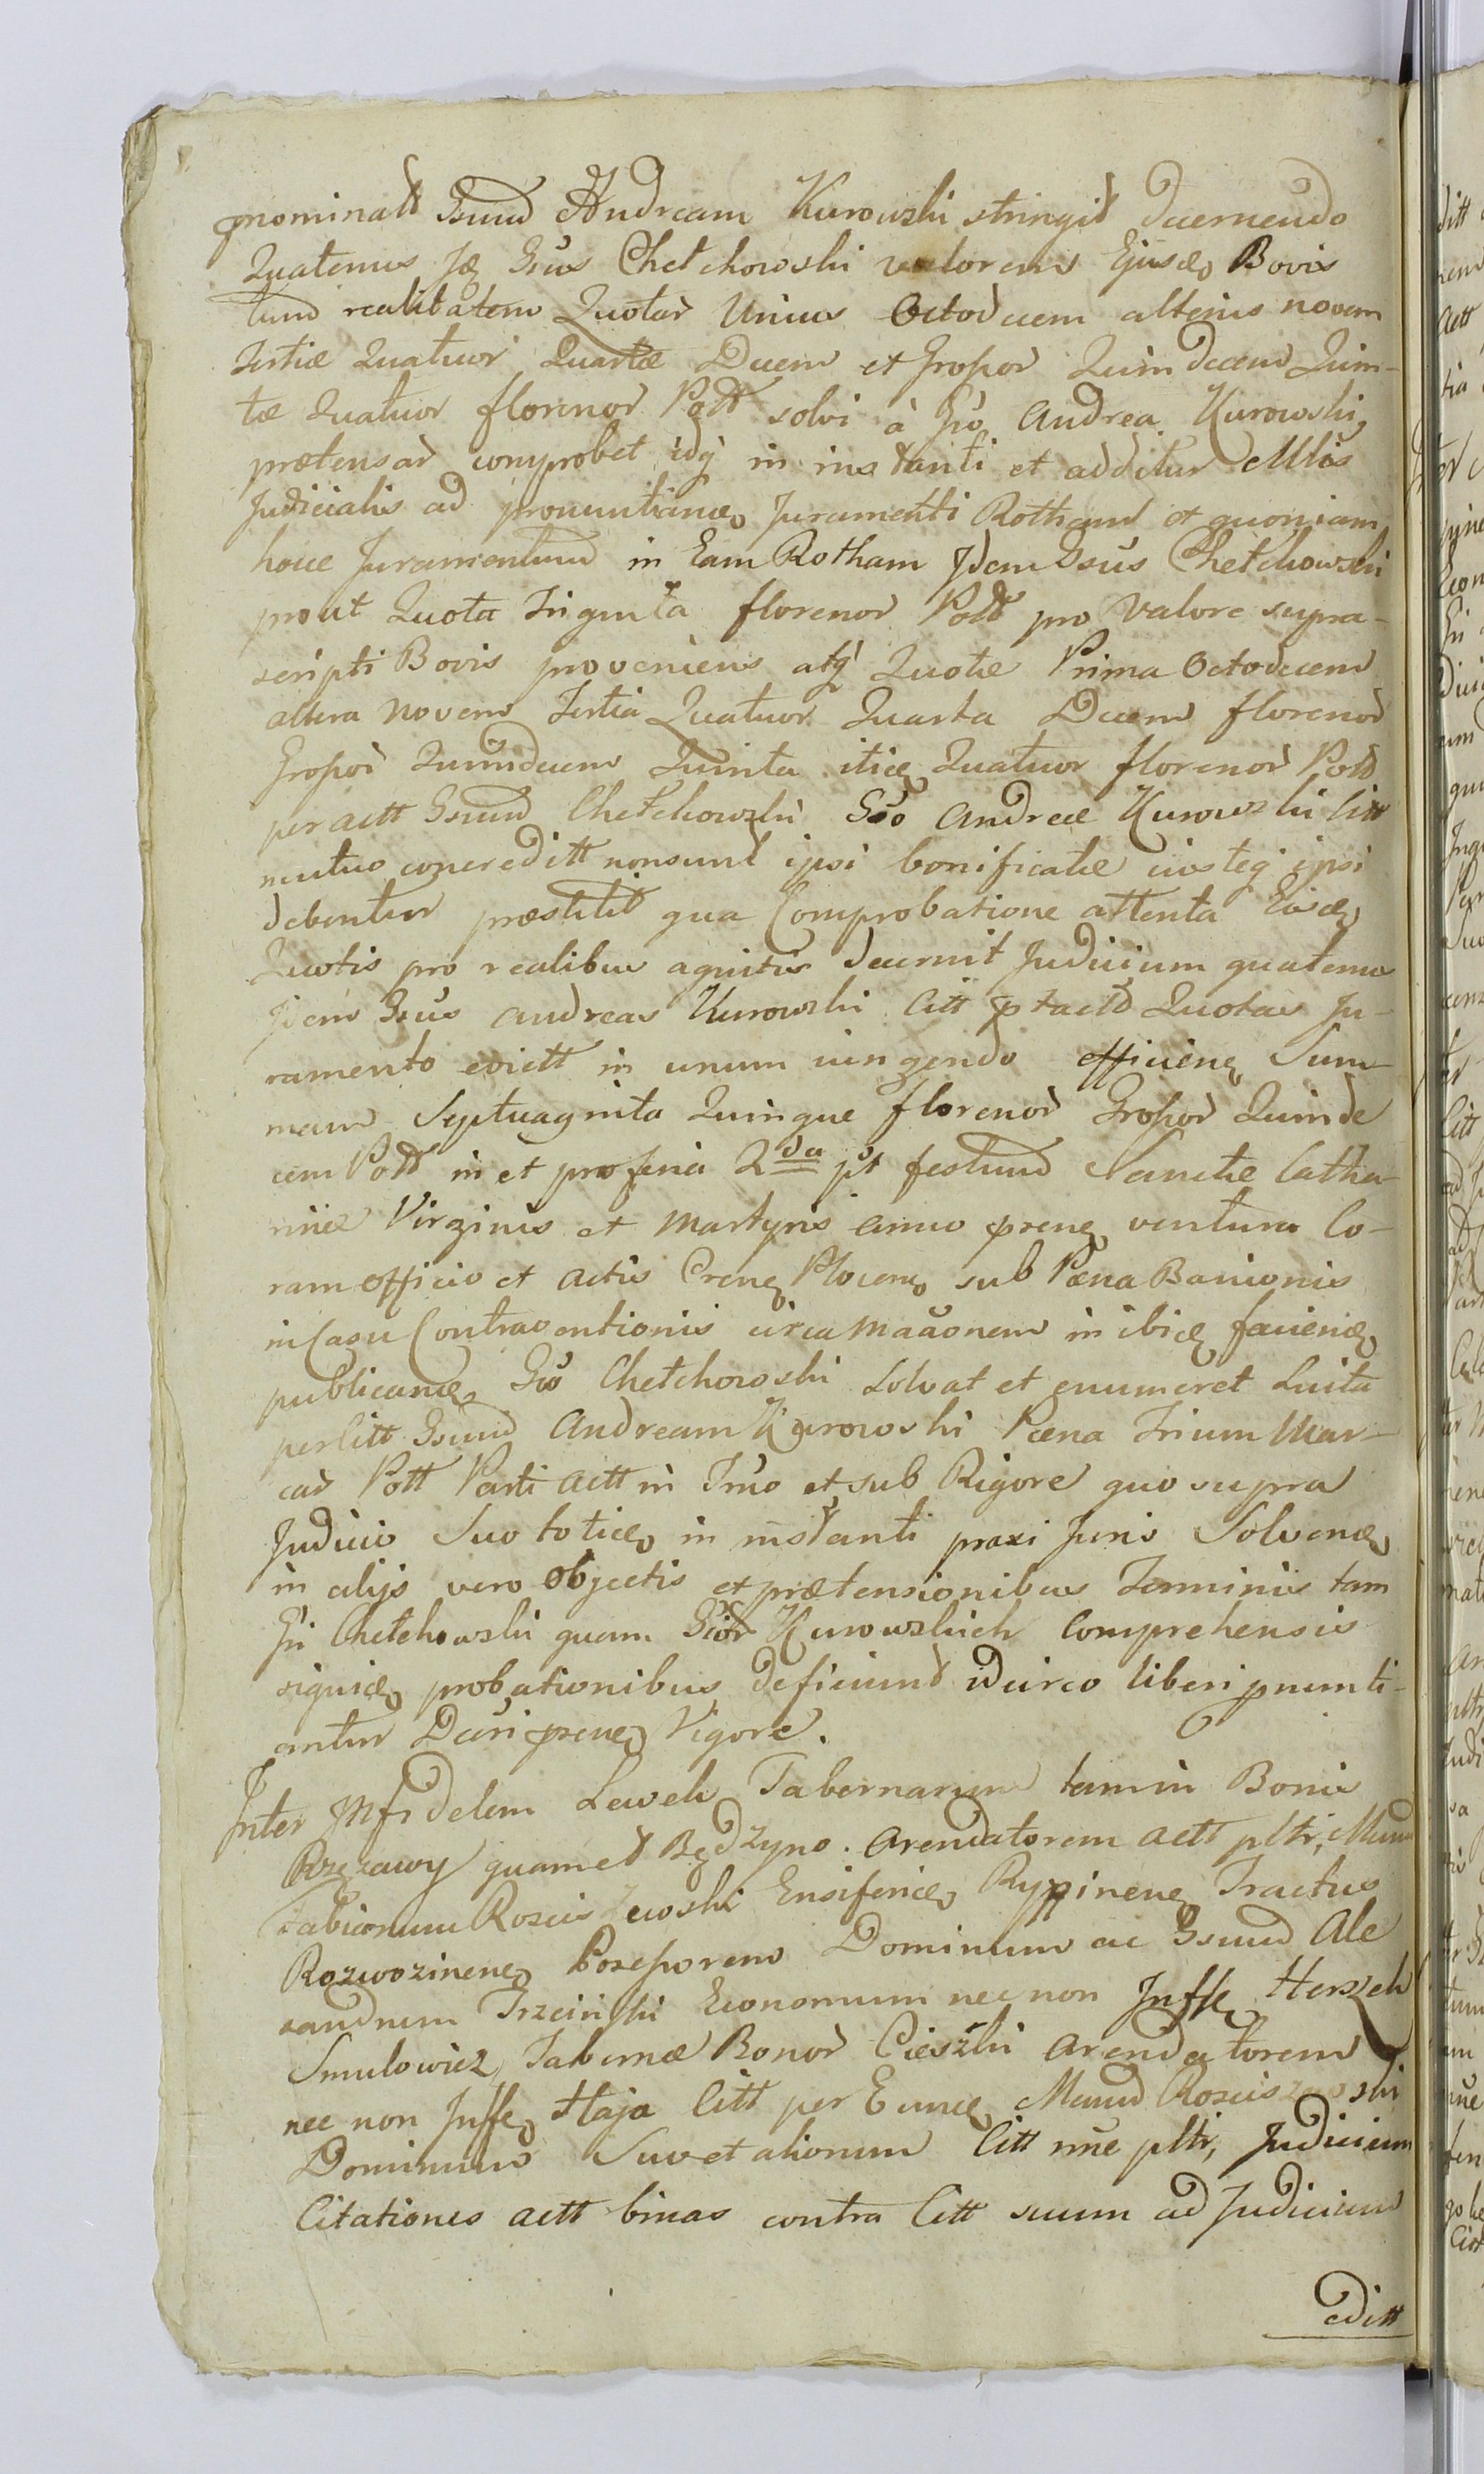 pnominatt Gsum Andream Kurowski stringit decernendo
Quatenus Jdę Gsus Chełchowski valorem Ejusdę Bovis
tum realitatem Quotar Unius Octodecem alterius novem
Tertiæ Quatuor Quartæ Decem et Grossor Quindecem Quin-
tæ Quatuor florenor Poll solvi à Gso Andrea Kurowski
prætensar comprobet idq in instanti et additur Mlis
Judicialis ad pronuntiandę Juramenti Rotham et quoniam
hocce Juramentum in Eam Rotham Jdem Gsus Chełchowski
prout Quota Triginta florenor Poll pro valore supra-
scripti Bovis proveniens atq Quotæ Prima Octodecem
altera Novem Tertia Quatuor Quarta Decem florenor
Grossor Quindecem Quinta itidę Quatuor florenor Poll
per actt Gsum Chełchowski Gso Andreæ Kurowski Citt
mutuo concreditt non sunt ipsi bonificatæ iusteq ipsi
debentur præstitit qua Comprobatione attenta Eisdę
Quotis pro realibus agnitis decernit Judicium quatenus
Jdem Gsus Andreas Kurowski Citt ptactt Quotas Ju-
ramento evictt in unum iungendo efficienę Sum-
mam Septuaginta Quinque florenor Grossor Quinde
cem Poll in et pro feria 2da pt festum Sanctæ Catha-
rinæ Virginis et Martyris anno prenę venturo Co-
ram Officio et Actis Crenę Plocenę sub Pæna Banionis
in Casu Contraventionis circa Maaonem in ibidę faciendę
publicandę Gso Chełchowski Solvat et enumeret Luita
per Citt Gsum Andream Kurowski Pæna Trium Mar-
car Poll Parti Actt in Tmo et sub Rigore quo supra
Judicio Suo totidę in instanti praxi Juris Solvendę
in alijs vero Objectis et prætensionibus Terminis tam
Gsi Chełchowski quam Gsor Kurowskich Comprehensis
siquidę probationibus deficiunt idcirco liberi pnunti-
antur Decri prenę Vigore.
Inter Infidelem Lewek Tabernarum tam in Bonis
Rzęzawy quam et Będzyno. Arendatorem Actt pltr, Mum
Fabianum Rosciszewski Ensiferidę Rypinenę Tractus
Rozwozinenę Possessorem Dominum ac Gsum Ale
xandrum Trzciński Economum nec non Jnffę Herszek
Smulowicz Tabernæ Bonor Cieszki Arendatorem
nec non Jnffę Haja Citt per Eundę Mum Rosciszewski
Dominum Suo et aliorum Citt nne pltr, Judicium
Citationes actt binas contra Citt suum ad Judicium
editt